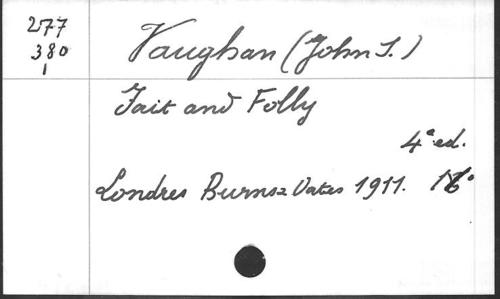 277
380
1
Vaughan (John S.)
Fait and Folly
4ª ed.
Londres Burns & Oates 1911. 16º